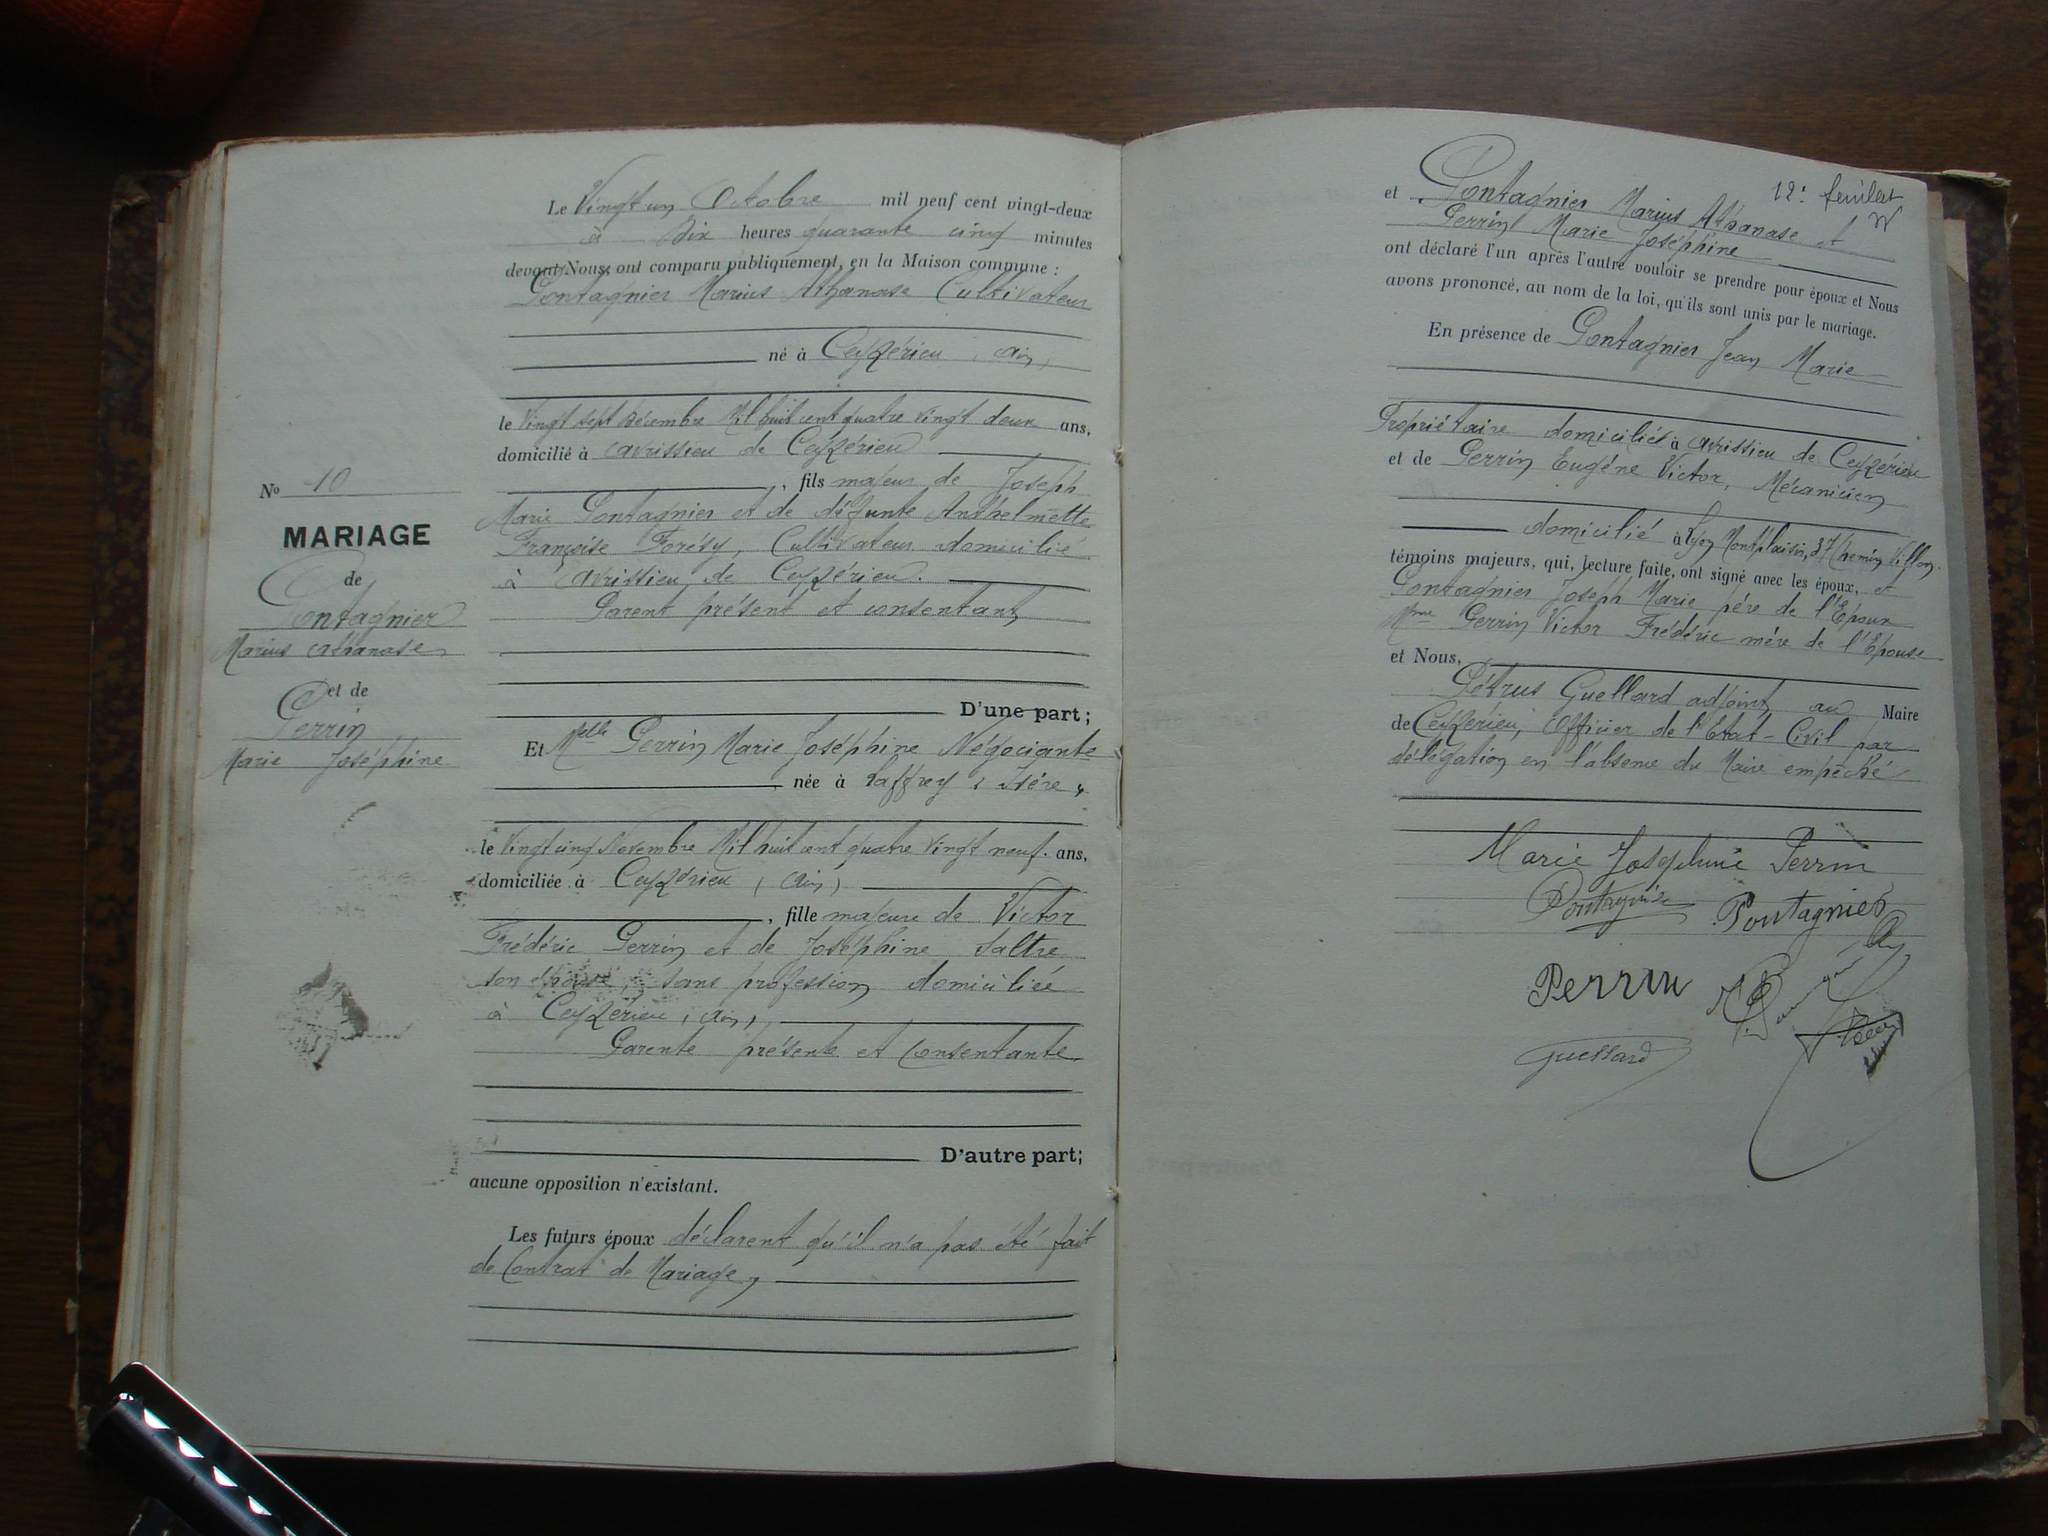 Nº 10
MARIAGE
de
Pontagnier
Marius Athanase
et de
Perrin
Marie Joséphine
Le Vingt un Octobre mil neuf cent vingt-deux
à Dix heures quarante cinq minutes
devant Nous, ont comparu publiquement, en la Maison commune :
Pontagnier Marius Athanase Cultivateur
né à Ceyzérieu (Ain)
le Vingt sept Décembre Mil huit cent quatre vingt deux ans,
domicilié à Avrissieu de Ceyzérieu
, fils majeur de Joseph
Marie Pontagnier et de défunte Anthelmette
Françoise Forésy, Cultivateur domicilié
à Avrissieu de Ceyzérieu.
Parent présent et consentant
D'une part;
Et Melle Perrin Marie Joséphine Négociante
née à Laffrey (Isére)
le Vingt cinq Novembre Mil huit cent quatre vingt neuf. ans,
domiciliée à Ceyzérieu (Ain)
, fille majeure de Victor
Frédéric Perrin et de Joséphine Saltre
son épouse, sans profession domiciliée
à Ceyzérieu (Ain)
Parente présente et consentante
D'autre part;
aucune opposition n'existant.
Les futurs époux déclarent qu'il n'a pas été fait
de Contrat de Mariage,
12e feuillet
et Pontagnier Marius Athanase et
Perrin Marie Joséphine
ont déclaré l'un après l'autre vouloir se prendre pour époux et Nous
avons prononcé, au nom de la loi, qu'ils sont unis par le mariage.
En présence de Pontagnier Jean Marie
Propriétaire domicilié à Avrissieu de Ceyzérieu
et de Perrin Eugéne Victor, Mécanicien
domicilié à Lyon Montplaisir, 37 Chemin Villon.
témoins majeurs, qui, lecture faite, ont signé avec les époux, et
Pontagnier Joseph Marie pére de l'Epoux
Mme Perrin Victor Frédéric mére de l'Epouse
et Nous,
Pétrus Guellard adjoint au Maire
de Ceyzérieu, Officier de l'Etat-Civil par
délégation en l'absence du Maire empêché
Marie Joséphine Perrin
Pontagnier Pontagnier
Perrin
Guellard